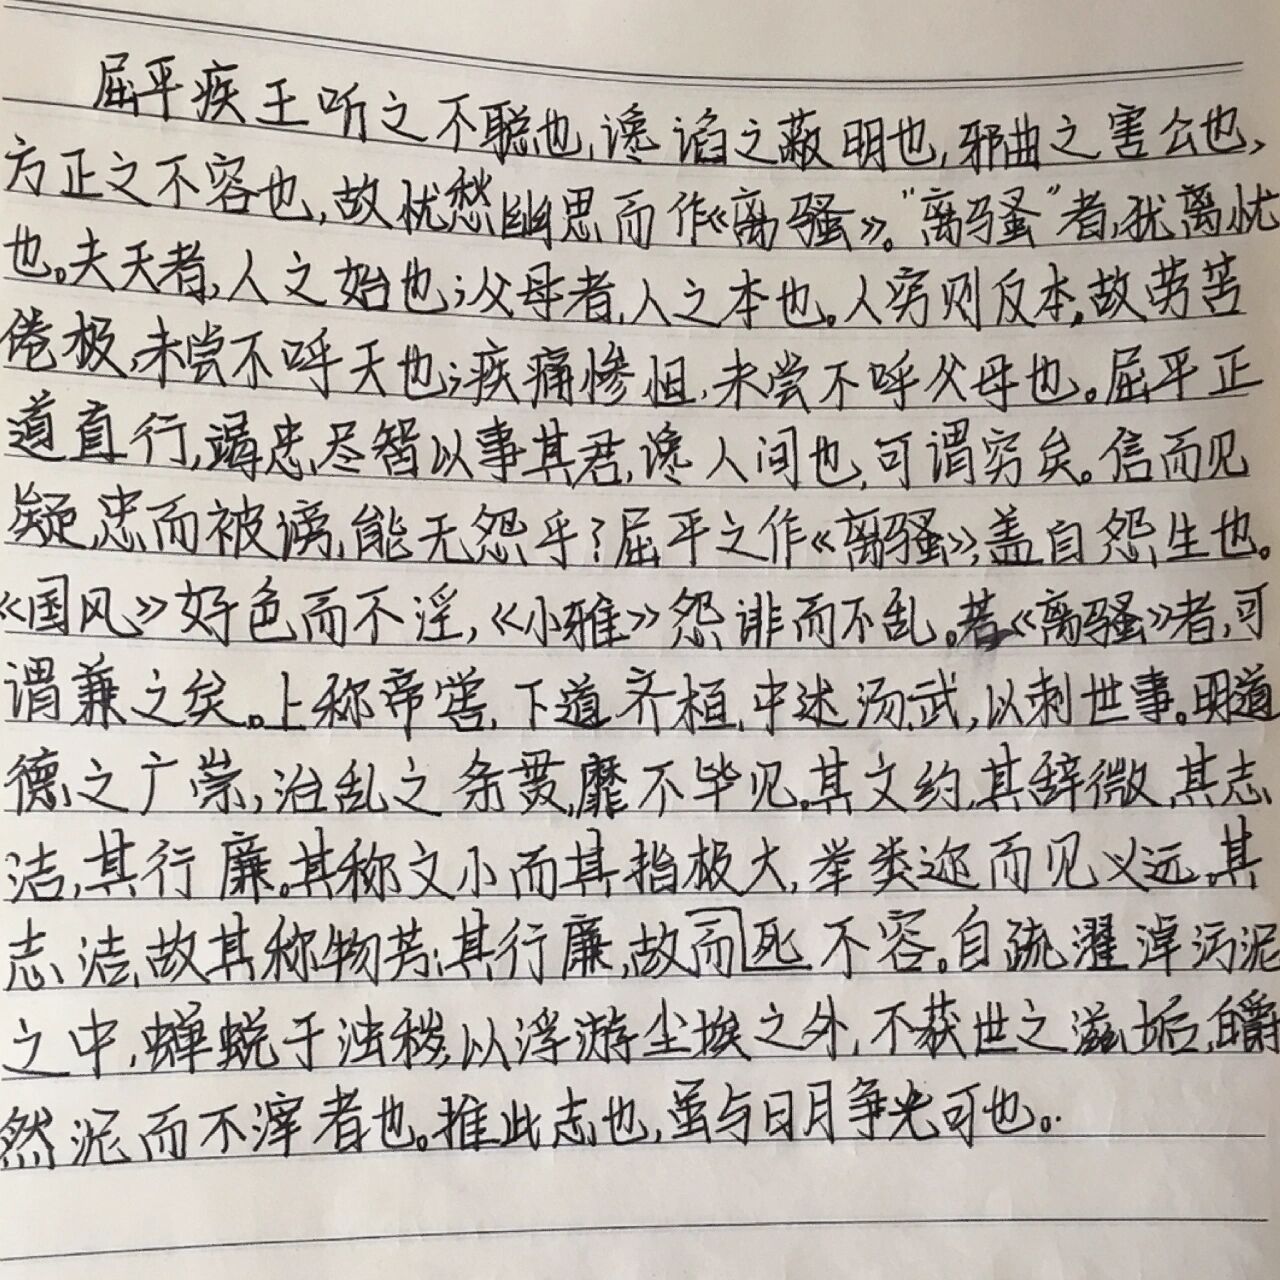 屈平疾王听之不聪也,谗谄之蔽明也,邪曲之害公也,
方正之不容也,故忧愁幽思而作《离骚》。“离骚”者,犹离忧
也。夫天者,人之始也;父母者,人之本也。人穷则反本,故劳苦
倦极,未尝不呼天也;疾痛惨怛,未尝不呼父母也。屈平正
道直行,竭忠尽智以事其君,谗人间也,可谓穷矣。信而见
疑,忠而被谤,能无怨乎?屈平之作《离骚》,盖自怨生也。
《国风》好色而不淫,《小雅》怨诽而不乱。若《离骚》者,可
谓兼之矣。上称帝喾,下道齐桓,中述汤武,以刺世事。明道
德之广崇,治乱之条贯,靡不毕见。其文约,其辞微,其志
洁,其行廉。其称文小而其指极大,举类迩而见义远。其
志洁,故其称物芳;其行廉,故而死不容。自疏濯淖污泥
之中,蝉蜕于浊秽,以浮游尘埃之外,不获世之滋垢,皭
然泥而不滓者也。推此志也,虽与日月争光可也。